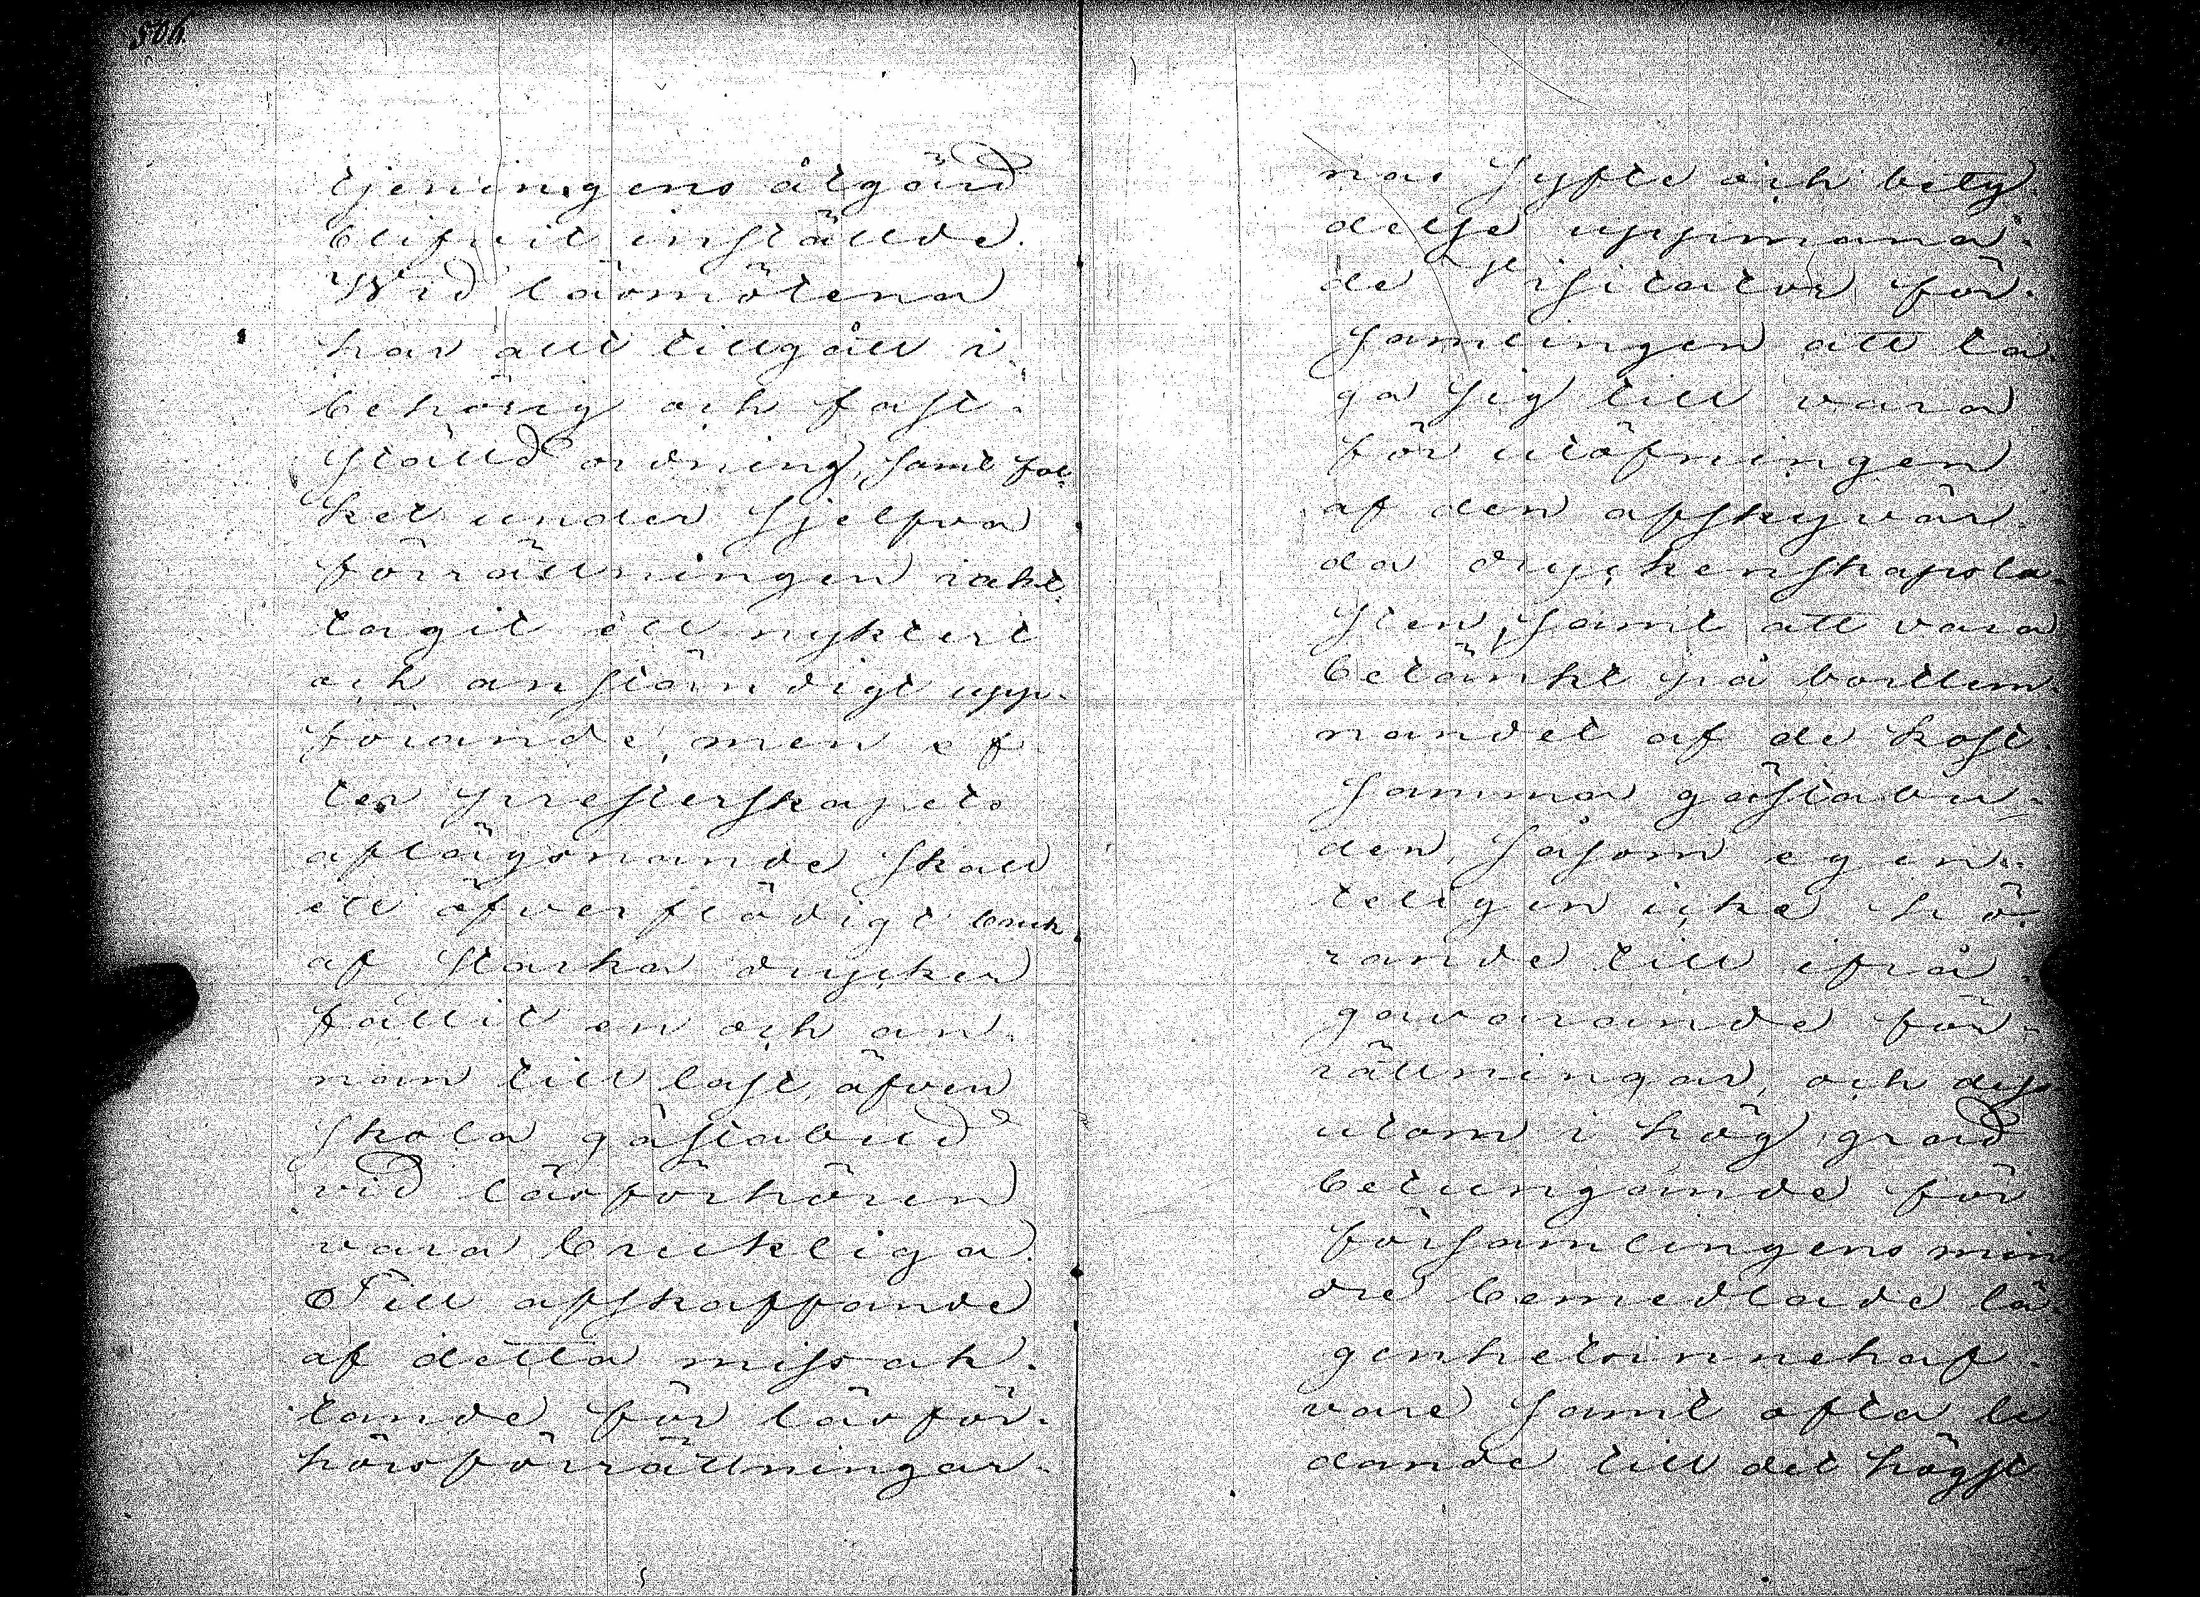 506
tjeningens åtgärd
blifvit inställde.
Wid läsmötena
har allt tillgått i
behörig och fast-
ställd ordning, samt fol-
ket under sjelfva
förrättningen iakt-
tagit ett nyktert
och anständigt upp-
förande, men ef-
ter presterskapets
aflägsnande skall
ett öfverflödigt bruk
af starka drycker
fallit en och an-
nan till last, äfven
skola gästabud
vid läsförhören
vara brukliga.
Till afskaffande
af detta missak-
tande för läsför-
hörsförrättningar-
nas syfte och bety-
delse uppmana-
de Visitator för-
samlingen att ta-
ga sig till vara
för utöfningen
af den afskyvär-
da dryckenskapsla-
sten, samt att vara
betänkt på bortlem-
nandet af de kost-
samma gästabu-
den, såsom egen-
teligen icke hö-
rande till ifrå-
gavarande för-
rättningar, och dess-
utom i hög grad
betungande för
församlingens min
dre bemedlade lä-
genhetsinnehaf-
vare samt ofta le-
dande till det högst